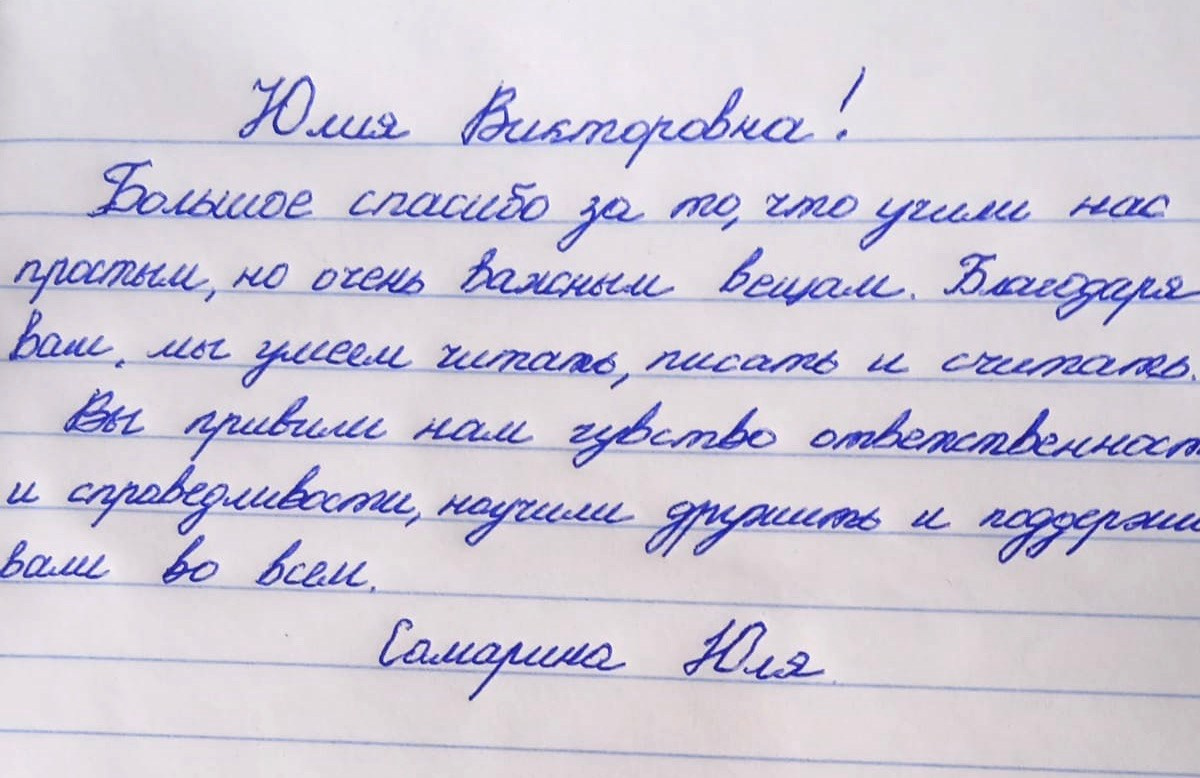 Юлия Викторовна!
Большое спасибо за то, что учили нас
простым, но очень важным вещам. Благодаря
вам, мы умеем читать, писать и считать.
Вы привили нам чувство ответственност
и справедливости, научили дружить и поддержи
вали во всем.
Самарина Юля